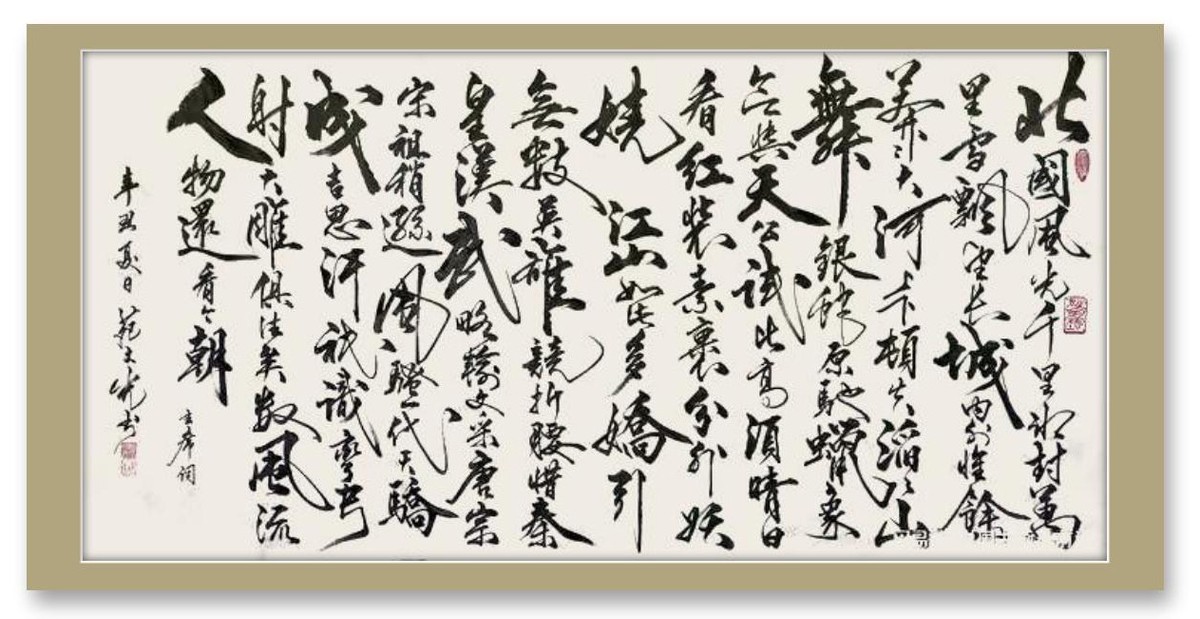 北國風光千里冰封萬
里雪飄望長城內外惟餘
莽々大河上下頓失滔々山
舞銀蛇原馳蠟象
欲與天公試比高須晴日
看紅裝素裹分外妖
嬈江山如此多嬌引
無數英雄競折腰惜秦
皇漢武略輸文采唐宗
宋祖稍遜風騷一代天驕
成吉思汗祇識彎弓
射大雕俱往矣數風流
人物還看今朝
主席詞
辛丑夏日範書